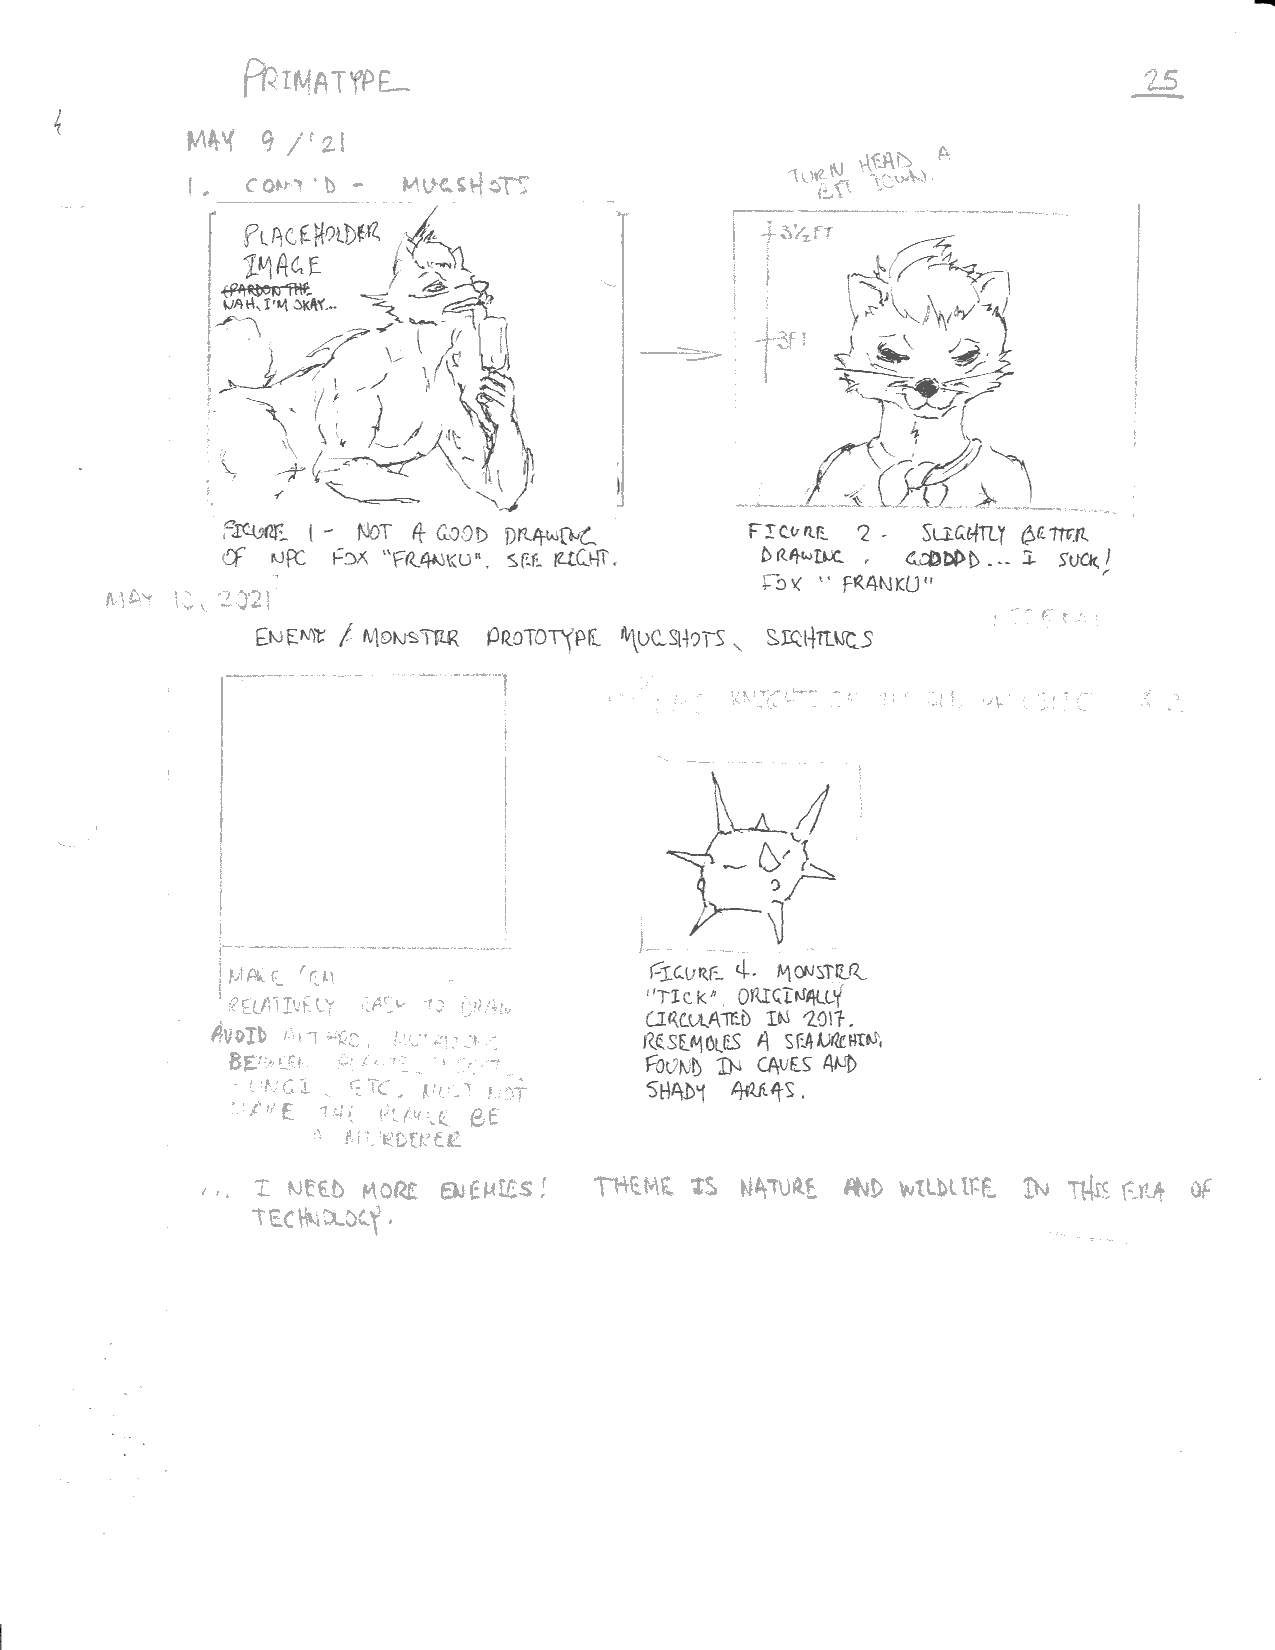 PRIMATYPE
25
MAY 9/'21
1. CONT'D - MUGSHOTS
TURN HEAD A
BIT DOWN.
PLACEHOLDER
IMAGE
(PARDON THE
NAH, I'M OKAY...
3½FT
3FT
FIGURE 1 - NOT A GOOD DRAWING
OF NPC FOX "FRANKU". SEE RIGHT.
FIGURE 2 - SLIGHTLY BETTER
DRAWING, GODDDD... I SUCK!
FOX "FRANKU"
MAY 10, 2021
ENEMY / MONSTER PROTOTYPE MUGSHOTS, SIGHTINGS
KNIGHTS OF
MAKE 'EM
RELATIVELY EASY TO DRAW
AVOID
BETWEEN
FUNGI, ETC. MUST NOT
MAKE THE PLAYER BE
A MURDERER
FIGURE 4. MONSTER
"TICK". ORIGINALLY
CIRCULATED IN 2017.
RESEMBLES A SEA URCHIN,
FOUND IN CAVES AND
SHADY AREAS.
... I NEED MORE ENEMIES! THEME IS NATURE AND WILDLIFE IN THIS ERA OF
TECHNOLOGY.